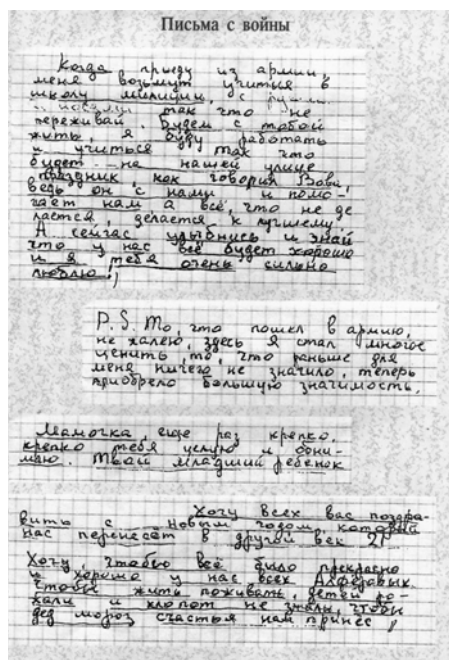 Письма с войны
Когда приеду из армии,
меня возьмут учиться в
школу милиции, с ру
так что не
переживай. Будем с тобой
жить, я буду работать
и учиться, так что
будет на нашей улице
праздник, как говорил Вова,
ведь он с нами и помо-
гает нам а всё, что не де
лается, делается к лучшему.
А сейчас улыбнись и знай
что у нас всё будет хорошо
и я тебя очень сильно
люблю!
P.S. То, что пошёл в армию,
не жалею, здесь я стал многое
ценить, то, что раньше для
меня ничего не значило, теперь
приобрело большую значимость.
Мамочка, ещё раз крепко,
крепко тебя целую и обни-
маю. Твой младший ребёнок
Хочу всех вас поздра-
вить с Новым годом, который
нас перенесёт в другой век 21
Хочу, чтобы всё было прекрасно
и хорошо у нас всех Алфёровых.
Чтобы жить поживать, детей ро-
жали и хлопот не знали, чтобы
дед мороз счастья нам принёс,